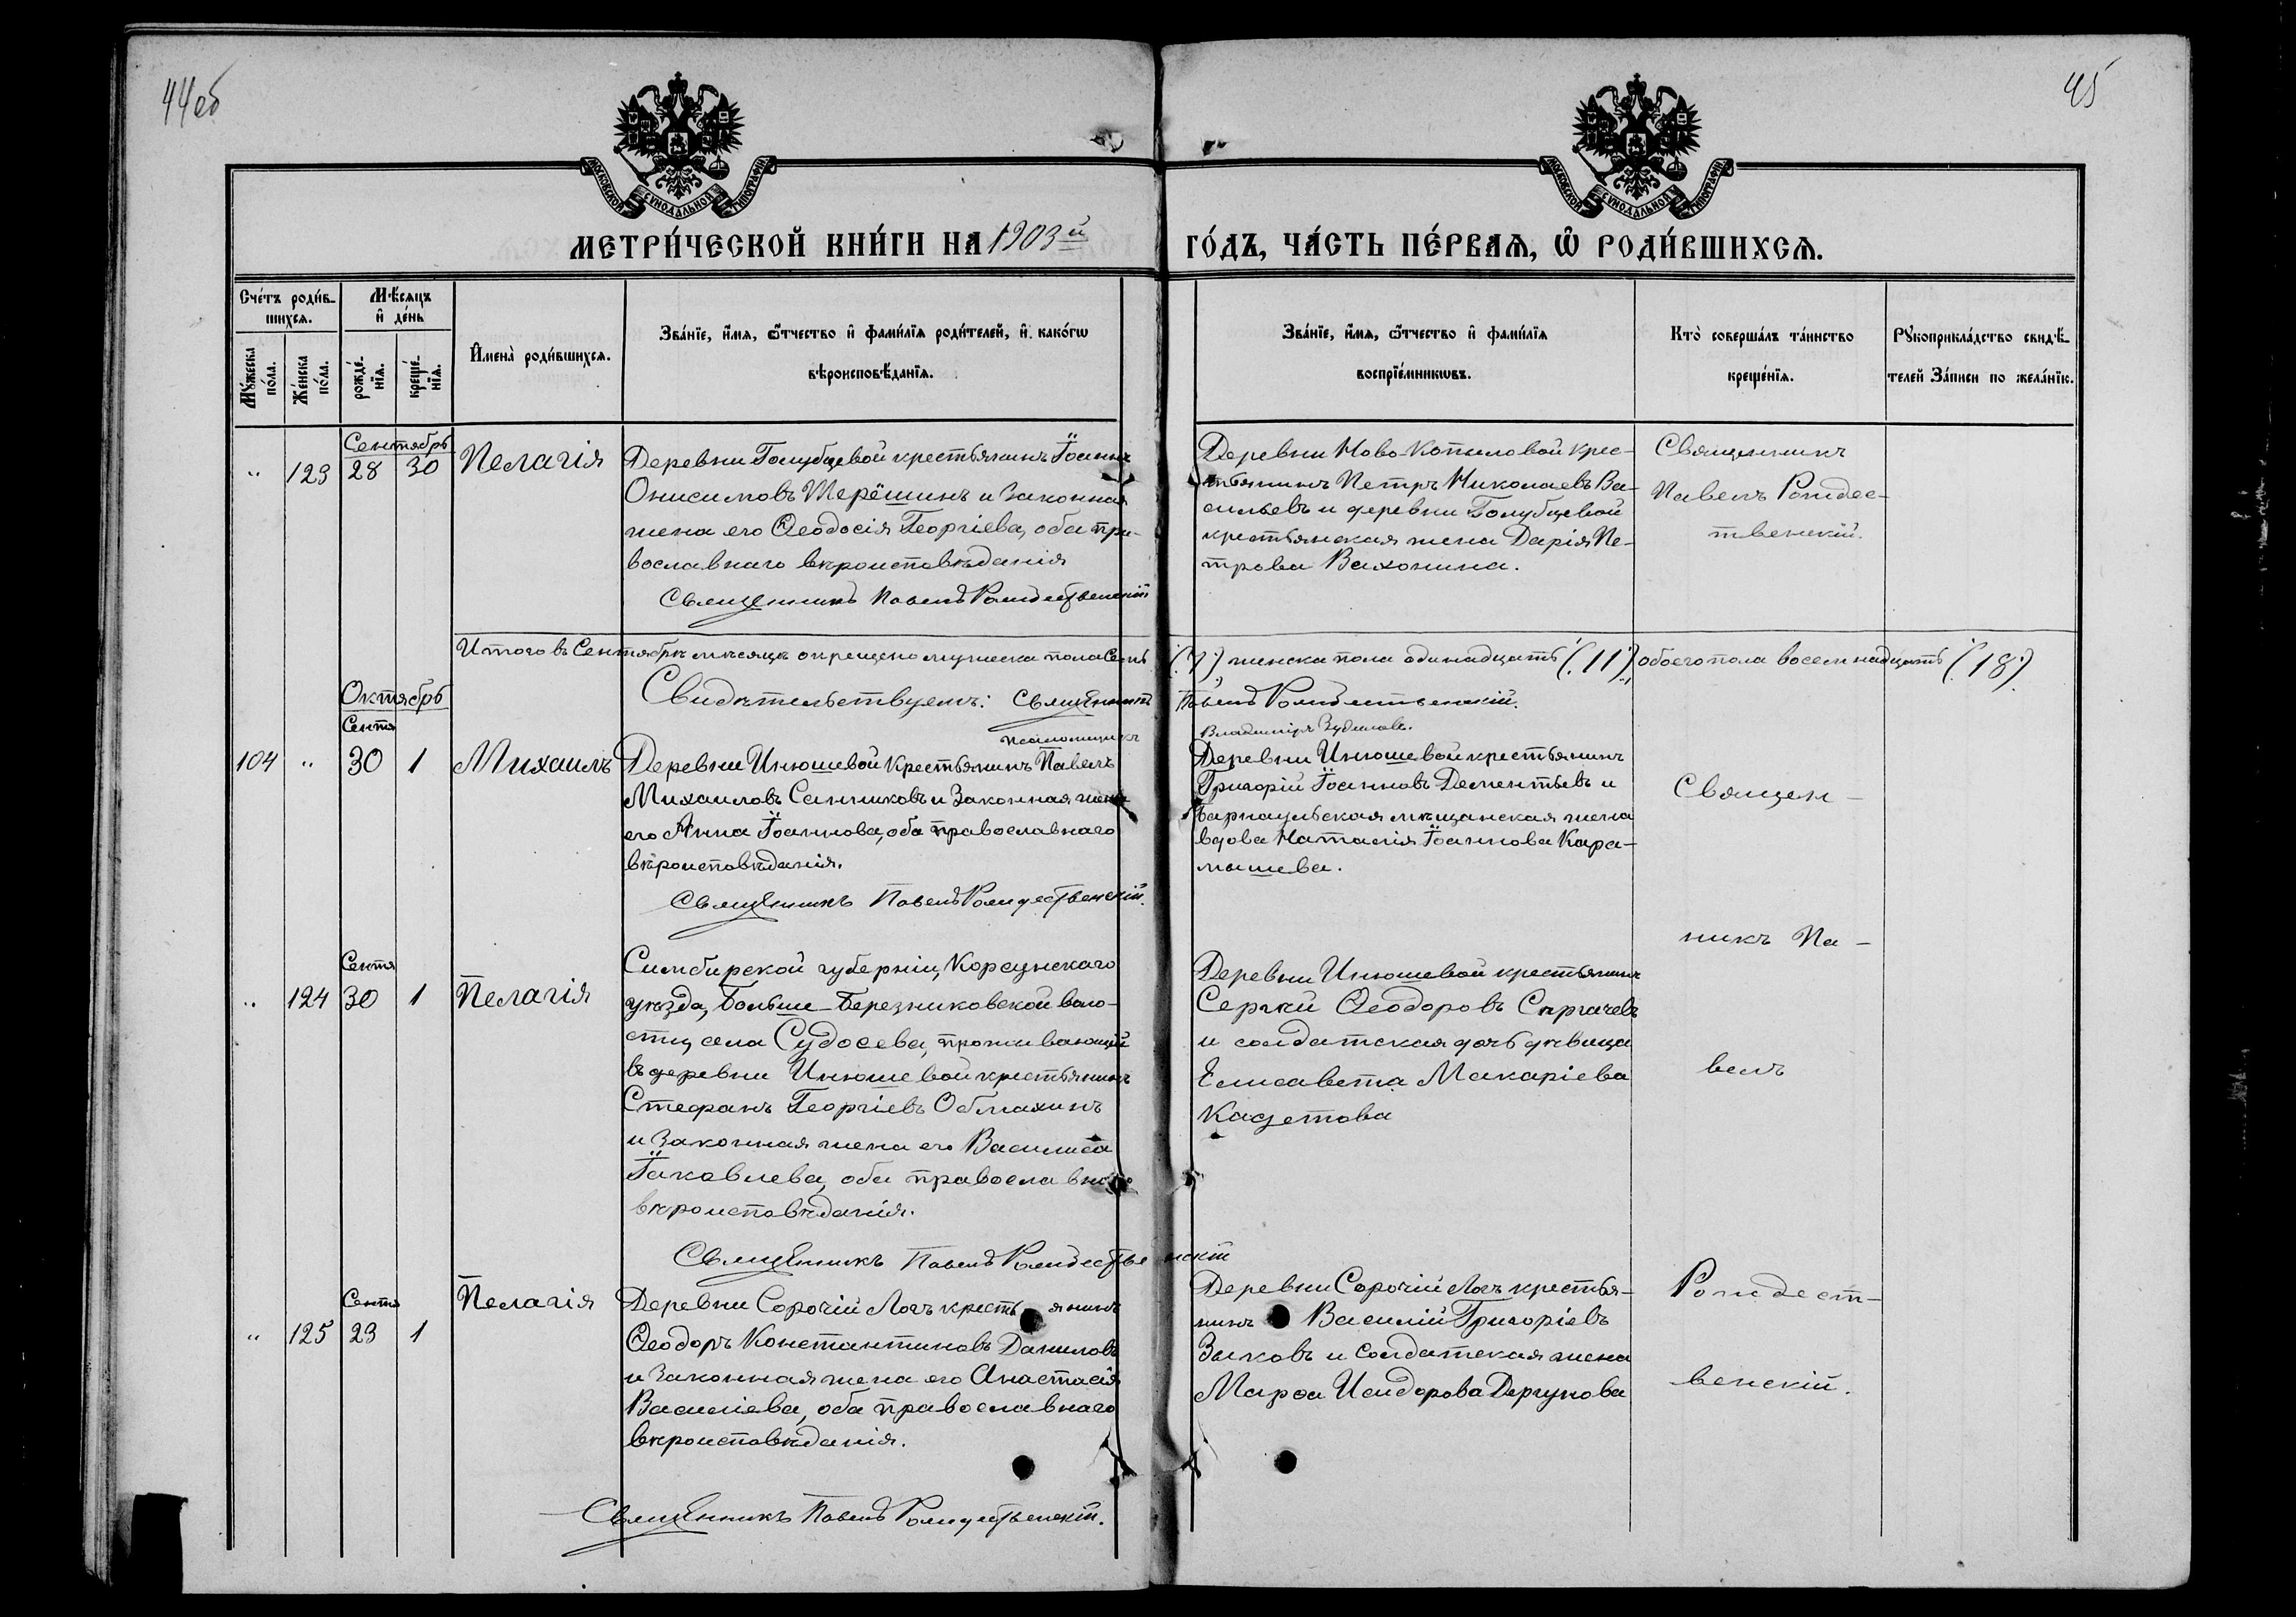 44об
45
МОСКОВСКОЙ СУНОДАЛЬНОЙ ТИПОГРАФІИ
МОСКОВСКОЙ СУНОДАЛЬНОЙ ТИПОГРАФІИ
МЕТРИ́ЧЕСКОЙ КНИ́ГИ НА 1903й ГО́ДЪ, ЧА́СТЬ ПЕ́РВАѦ, Ѡ҆ РОДИ́ВШИХСѦ.
Сче́тъ роди́в-
шихсѧ.
Му́жеска
по́ла.
Же́нска
по́ла.
Мѣ́сѧцъ
и҆ де́нь
рожде́-
нїѧ.
креще́-
нїѧ.
И҆мена̀ роди́вшихсѧ.
Зва́нїе, и҆́мѧ, ѻ҆́тчество и҆ фами́лїѧ роди́телей, и҆ како́гѡ
вѣроисповѣ́данїѧ.
Зва́нїе, и҆́мѧ, ѻ҆́тчество и҆ фами́лїѧ
воспрїе́мникѡвъ.
Кто̀ соверша́лъ та́инство
креще́нїѧ.
Рꙋкоприкла́дство свидѣ́-
телей За́писи по жела́нїю.
Сентябрь
" 123 28 30 Пелагія
Деревни Голубцевой крестьянинъ Іоаннъ
Онисимовъ Терёшинъ и законная
жена его Ѳеодосія Георгіева, оба пра-
вославнаго вѣроисповѣданія
Священникъ Павелъ Рождественскій
Деревни Ново-Копыловой крес-
тьянинъ Петръ Николаевъ Ва-
сильевъ и деревни Голубцевой
крестьянская жена Дарія Пе-
трова Вахонина.
Священникъ
Павелъ Рождес-
твенскій.
Итого въ Сентябрѣ мѣсяцѣ окрещено мужеска пола семь (7) женска пола одинадцать (11), обоего пола восемнадцать (18).
Свидѣтельствуемъ: Священникъ Павелъ Рождественскій.
Псаломщикъ Владиміръ Зудиловъ.
Октябрь
Сентя
104 " 30 1 Михаилъ
Деревни Инюшевой крестьянинъ Павелъ
Михаиловъ Санниковъ и законная жена
его Анна Іоаннова, оба православнаго
вѣроисповѣданія.
Священникъ Павелъ Рождественскій.
Деревни Инюшевой крестьянинъ
Григорій Іоанновъ Дементьевъ и
Барнаульская мѣщанская жена
вдова Наталія Іоаннова Кара-
мышева.
Священ-
никъ Па-
Сентя
" 124 30 1 Пелагія
Симбирской губерніи, Корсунскаго
уѣзда, Больше-Березниковской воло-
сти, села Судосева, проживающій
въ деревни Инюшевой крестьянинъ
Стефанъ Георгіевъ Облмахинъ
и законная жена его Василиса
Іаковлева, оба православнаго
вѣроисповѣданія.
Священникъ Павелъ Рождественскій
Деревни Инюшевой крестьянинъ
Сергій Ѳеодоровъ Сѣргачевъ
и солдатская дочь дѣвица
Елисавета Макаріева
Кадетова
велъ
Сентя
" 125 23 1 Пелагія
Деревни Сорочій Логъ крестьянинъ
Ѳеодоръ Константиновъ Даниловъ
и законная жена его Анастасія
Василіева, оба православнаго
вѣроисповѣданія.
Священникъ Павелъ Рождественскій.
Деревни Сорочій Логъ крестья-
нинъ Василій Григоріевъ
Зыковъ и солдатская жена
Марѳа Исидорова Дергунова
Рождест-
венскій.